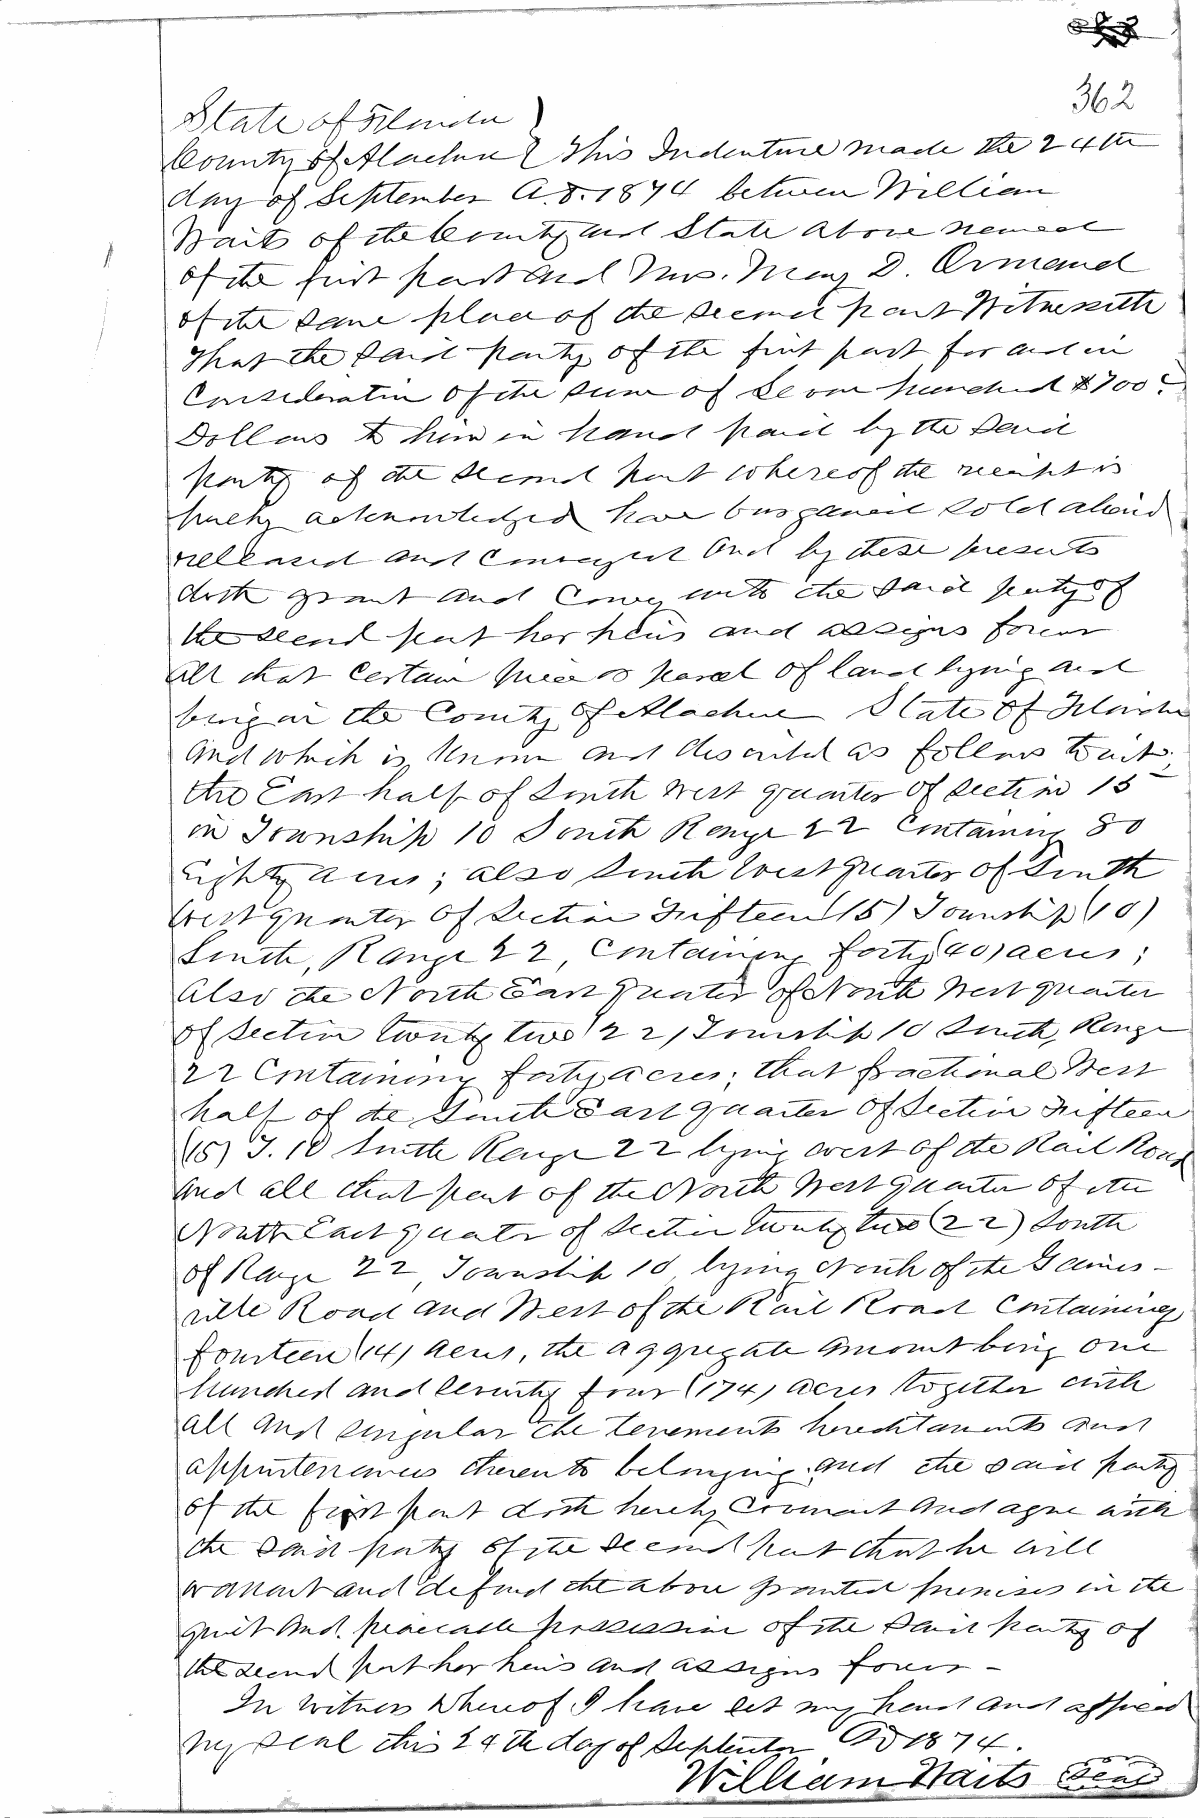 362
State of Florida )
County of Alachua } This Indenture made the 24th
day of September A.D. 1874 between William
Waits of the County and State above named
of the first part and Mrs. Mary D. Ormand
of the same place of the second part Witnesseth
that the said party of the first part for and in
Consideration of the sum of Seven hundred $700
Dollars to him in hand paid by the said
party of the second part whereof the receipt is
hereby acknowledged have bargained sold aliend
released and conveyed and by these presents
doth grant and convey unto the said party of
the second part her heirs and assigns forever
all that certain piece or parcel of land lying and
being in the County of Alachua State of Florida
and which is known and described as follows to wit;
the East half of South West quarter of section 15
in Township 10 South Range 22 containing 80
Eighty acres; also South West quarter of South
West quarter of Section Fifteen (15) Township (10)
South, Range 22, containing forty (40) acres;
also the North East quarter of North West quarter
of Section twenty two (22) Township 10 South, Range
22 containing forty acres; that fractional West
half of the South East quarter of Section Fifteen
(15) T. 10 South Range 22 lying west of the Rail Road
and all that part of the North West quarter of the
North East quarter of Section twenty two (22) South
of Range 22, Township 10, lying North of the Gaines-
ville Road and West of the Rail Road containing
fourteen (14) acres, the aggregate amount being one
hundred and seventy four (174) acres together with
all and singular the tenements hereditaments and
appurtenances thereunto belonging; and the said party
of the first part doth hereby covenant and agree with
the said party of the second part that he will
warrant and defend the above granted premises in the
quiet and peaceable possession of the said party of
the second part her heirs and assigns forever -
In witness whereof I have set my hand and affixed
my seal this 24th day of September AD 1874.
William Waits Seal